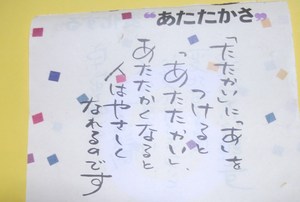 "あたたかさ"
「たたかい」に「あ」を
つけると
「あたたかい」、
あたたかくなると
人はやさしく
なれるのです